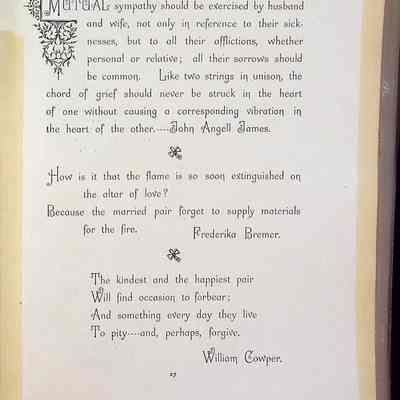 MUTUAL sympathy should be exercised by husband
and wife, not only in reference to their sick-
nesses, but to all their afflictions, whether
personal or relative; all their sorrows should
be common. Like two strings in unison, the
chord of grief should never be struck in the heart
of one without causing a corresponding vibration in
the heart of the other.----John Angell James.
How is it that the flame is so soon extinguished on
the altar of love?
Because the married pair forget to supply materials
for the fire. Frederika Bremer.
The kindest and the happiest pair
Will find occasion to forbear;
And something every day they live
To pity----and, perhaps, forgive.
William Cowper.
27